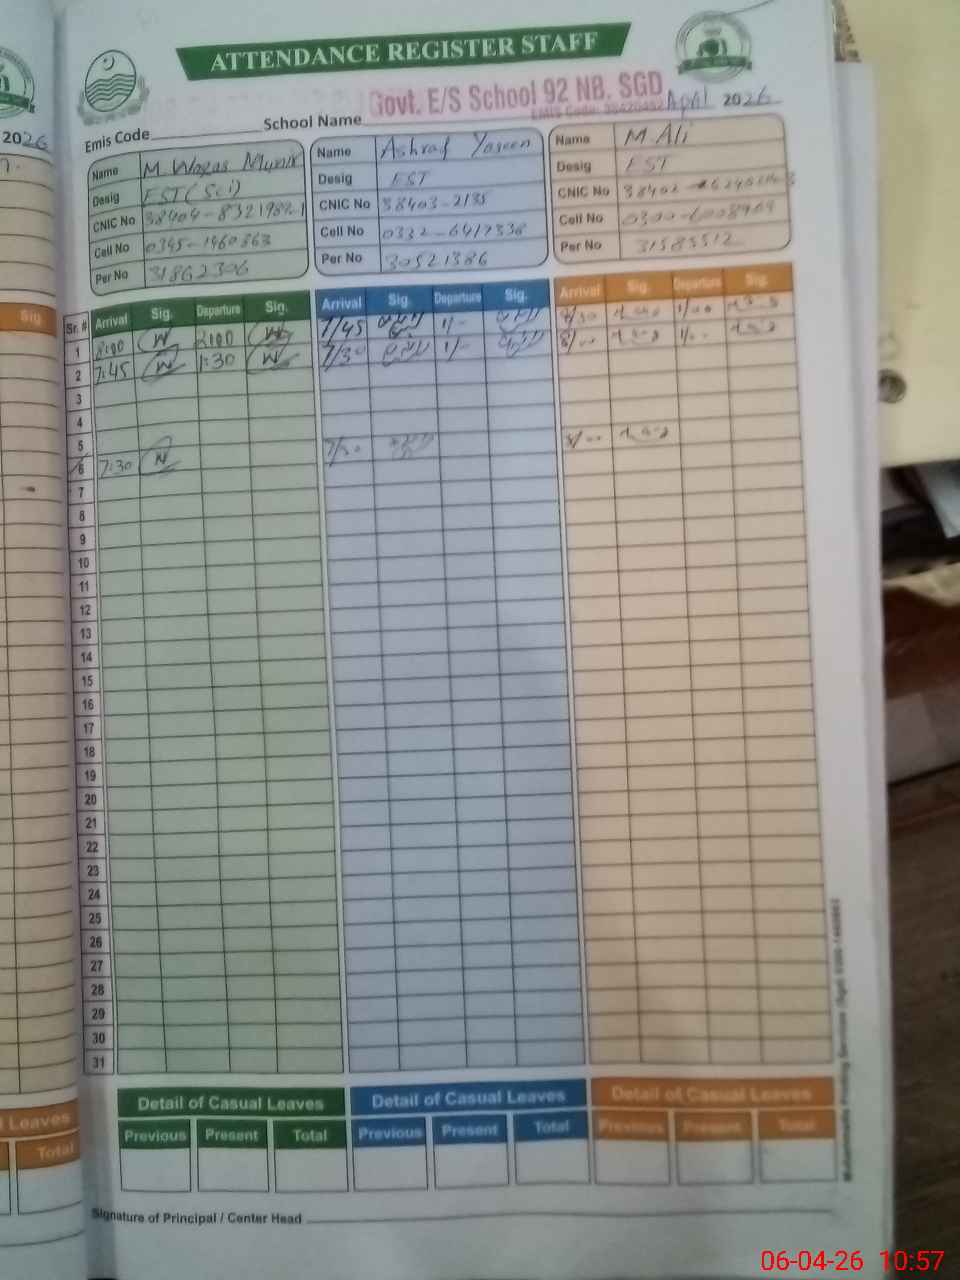 ATTENDANCE REGISTER STAFF
Govt. E/S School 92 NB. SGD
Emis Code School Name April 2026
2026
Name M. Waqas Munir
Desig EST (Sci)
CNIC No 38404-8321989-1
Cell No 0345-1460363
Per No 31862306
Name Ashraf Yaseen
Desig EST
CNIC No 38403-2135
Cell No 0332-6417338
Per No 30521386
Name M Ali
Desig EST
CNIC No 38402
Cell No 0300-6008969
Per No 31583512
Sr. # Arrival Sig. Departure Sig. Arrival Sig. Departure Sig. Arrival Sig. Departure Sig.
1 8:00 2:00 7/45 1/- 1/00
2 7:45 1:30 7/30 1/- 8/00 1/00
3
4
5
6 7:30 7/30 8/00
7
8
9
10
11
12
13
14
15
16
17
18
19
20
21
22
23
24
25
26
27
28
29
30
31
Sig
Leaves
Total
Detail of Casual Leaves Detail of Casual Leaves Detail of Casual Leaves
Previous Present Total Previous Present Total Previous Present Total
Signature of Principal / Center Head
06-04-26 10:57